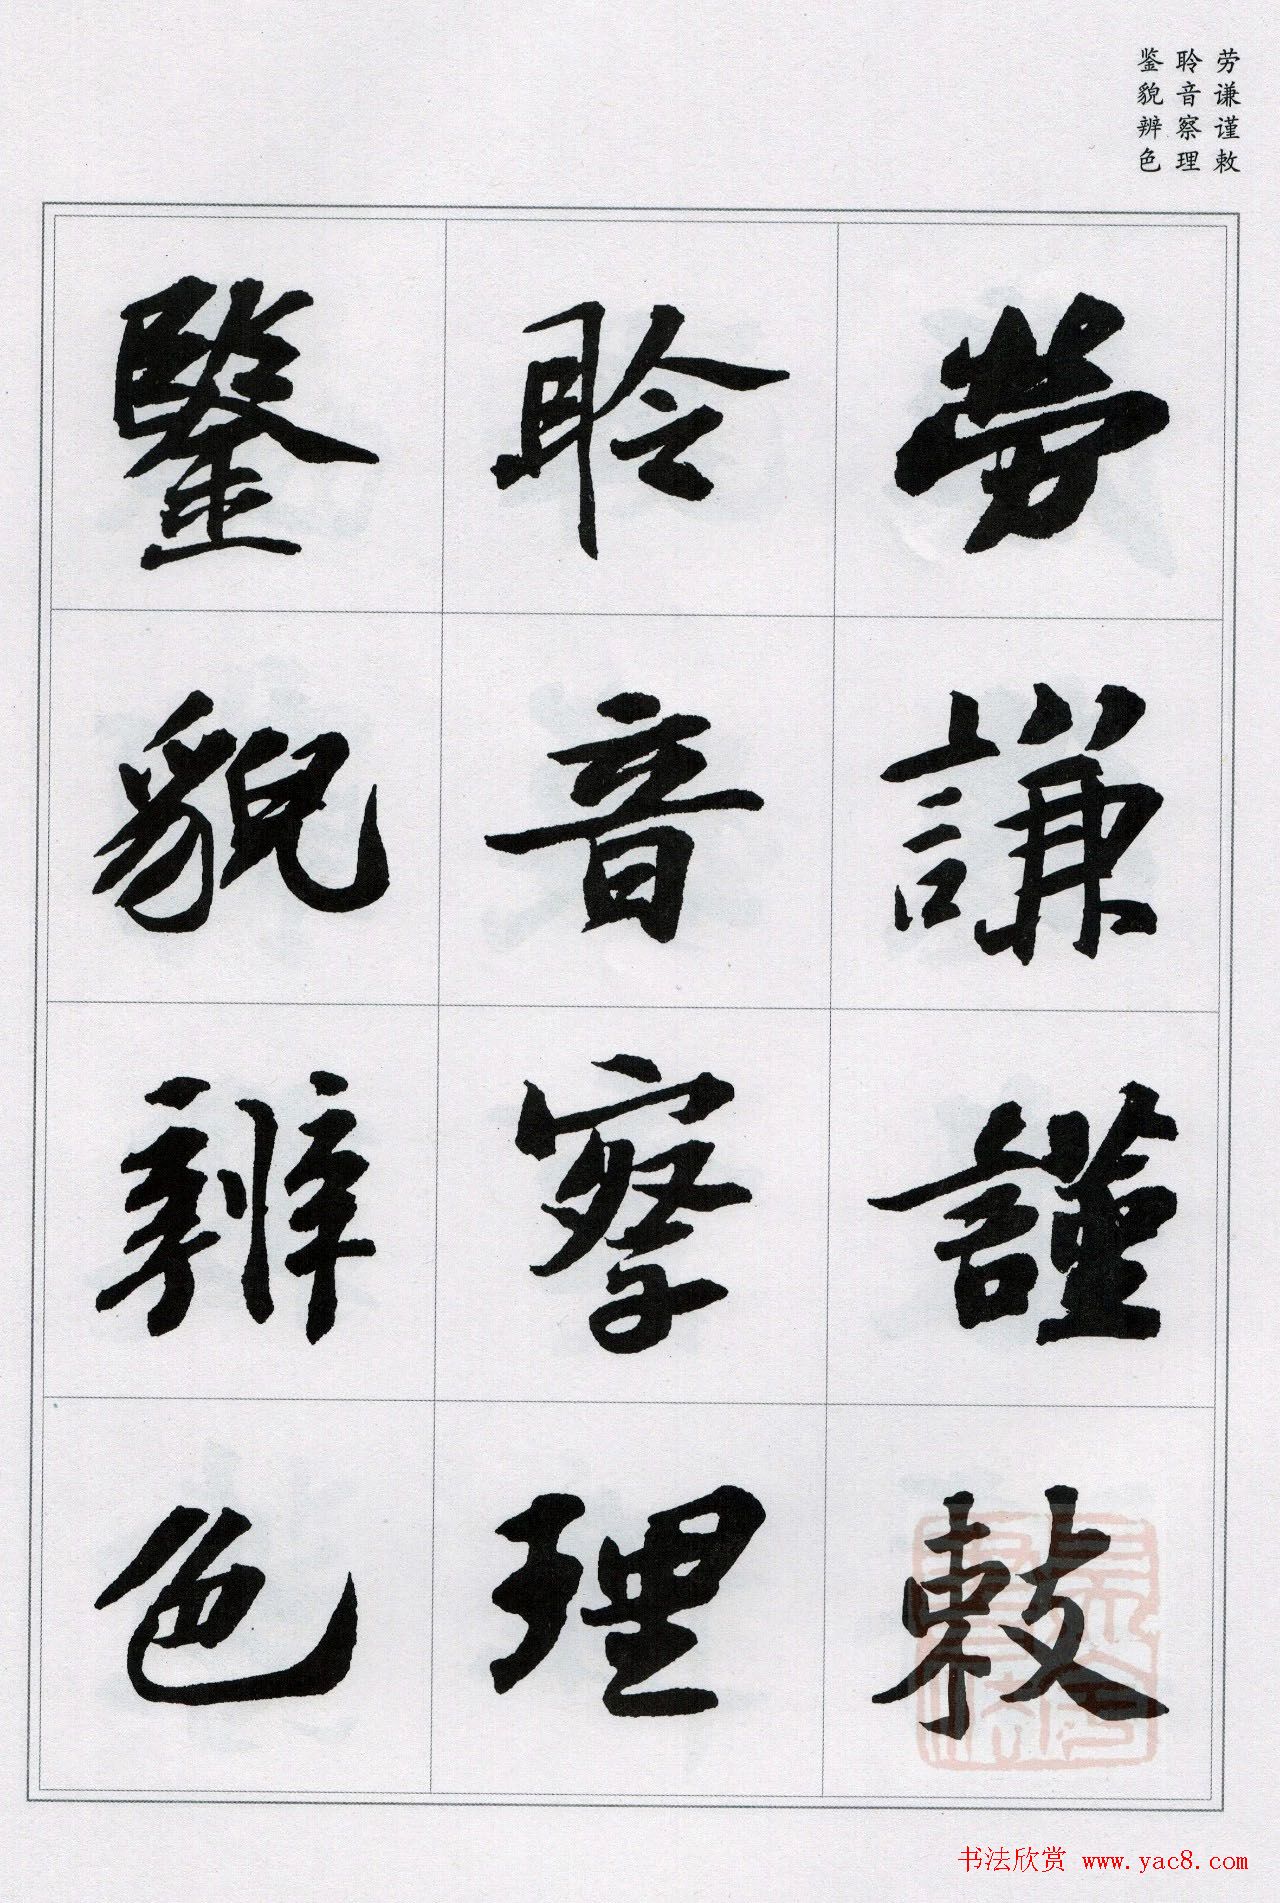 劳谦谨敕
聆音察理
鉴貌辨色
劳謙謹敕
聆音察理
鑒貌辨色
书法欣赏 www.yac8.com